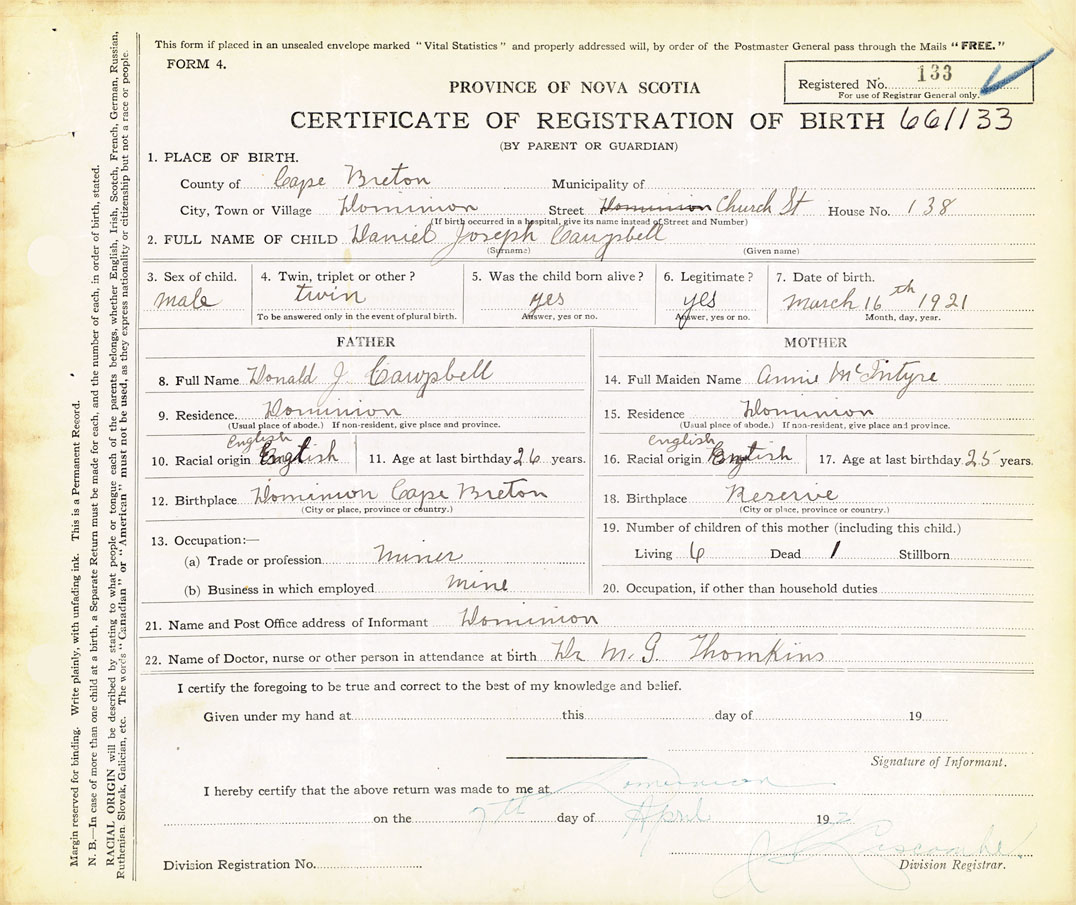 This form if placed in an unsealed envelope marked "Vital Statistics" and properly addressed will, by order of the Postmaster General pass through the Mails "FREE."
FORM 4.
Registered No. 133
For use of Registrar General only.
PROVINCE OF NOVA SCOTIA
CERTIFICATE OF REGISTRATION OF BIRTH 661133
(BY PARENT OR GUARDIAN)
1. PLACE OF BIRTH.
County of Cape Breton Municipality of
City, Town or Village Dominion Street Dominion Church St House No. 138
(If birth occurred in a hospital, give its name instead of Street and Number)
2. FULL NAME OF CHILD Daniel Joseph Campbell
(Surname) (Given name)
3. Sex of child. 4. Twin, triplet or other? 5. Was the child born alive? 6. Legitimate? 7. Date of birth.
male twin yes yes March 16th 1921
To be answered only in the event of plural birth. Answer, yes or no. Answer, yes or no. Month, day, year.
FATHER
8. Full Name Donald J Campbell
9. Residence. Dominion
(Usual place of abode.) If non-resident, give place and province.
English
10. Racial origin English 11. Age at last birthday 26 years.
12. Birthplace Dominion Cape Breton
(City or place, province or country.)
13. Occupation:—
(a) Trade or profession miner
(b) Business in which employed mine
MOTHER
14. Full Maiden Name Annie McIntyre
15. Residence Dominion
(Usual place of abode.) If non-resident, give place and province.
English
16. Racial origin English 17. Age at last birthday 25 years.
18. Birthplace Reserve
(City or place, province or country.)
19. Number of children of this mother (including this child.)
Living 6 Dead 1 Stillborn
20. Occupation, if other than household duties
21. Name and Post Office address of Informant Dominion
22. Name of Doctor, nurse or other person in attendance at birth Dr M. G. Thomkins
I certify the foregoing to be true and correct to the best of my knowledge and belief.
Given under my hand at this day of 19
Signature of Informant.
I hereby certify that the above return was made to me at Dominion
on the 7th day of April 192
Division Registration No. Division Registrar.
Margin reserved for binding. Write plainly, with unfading ink. This is a Permanent Record.
N. B.—In case of more than one child at a birth, a Separate Return must be made for each, and the number of each, in order of birth, stated.
RACIAL ORIGIN will be described by stating to what people or tongue each of the parents belongs, whether English, Irish, Scotch, French, German, Russian,
Ruthenian, Slovak, Galician, etc. The words "Canadian" or "American" must not be used, as they express nationality or citizenship but not a race or people.